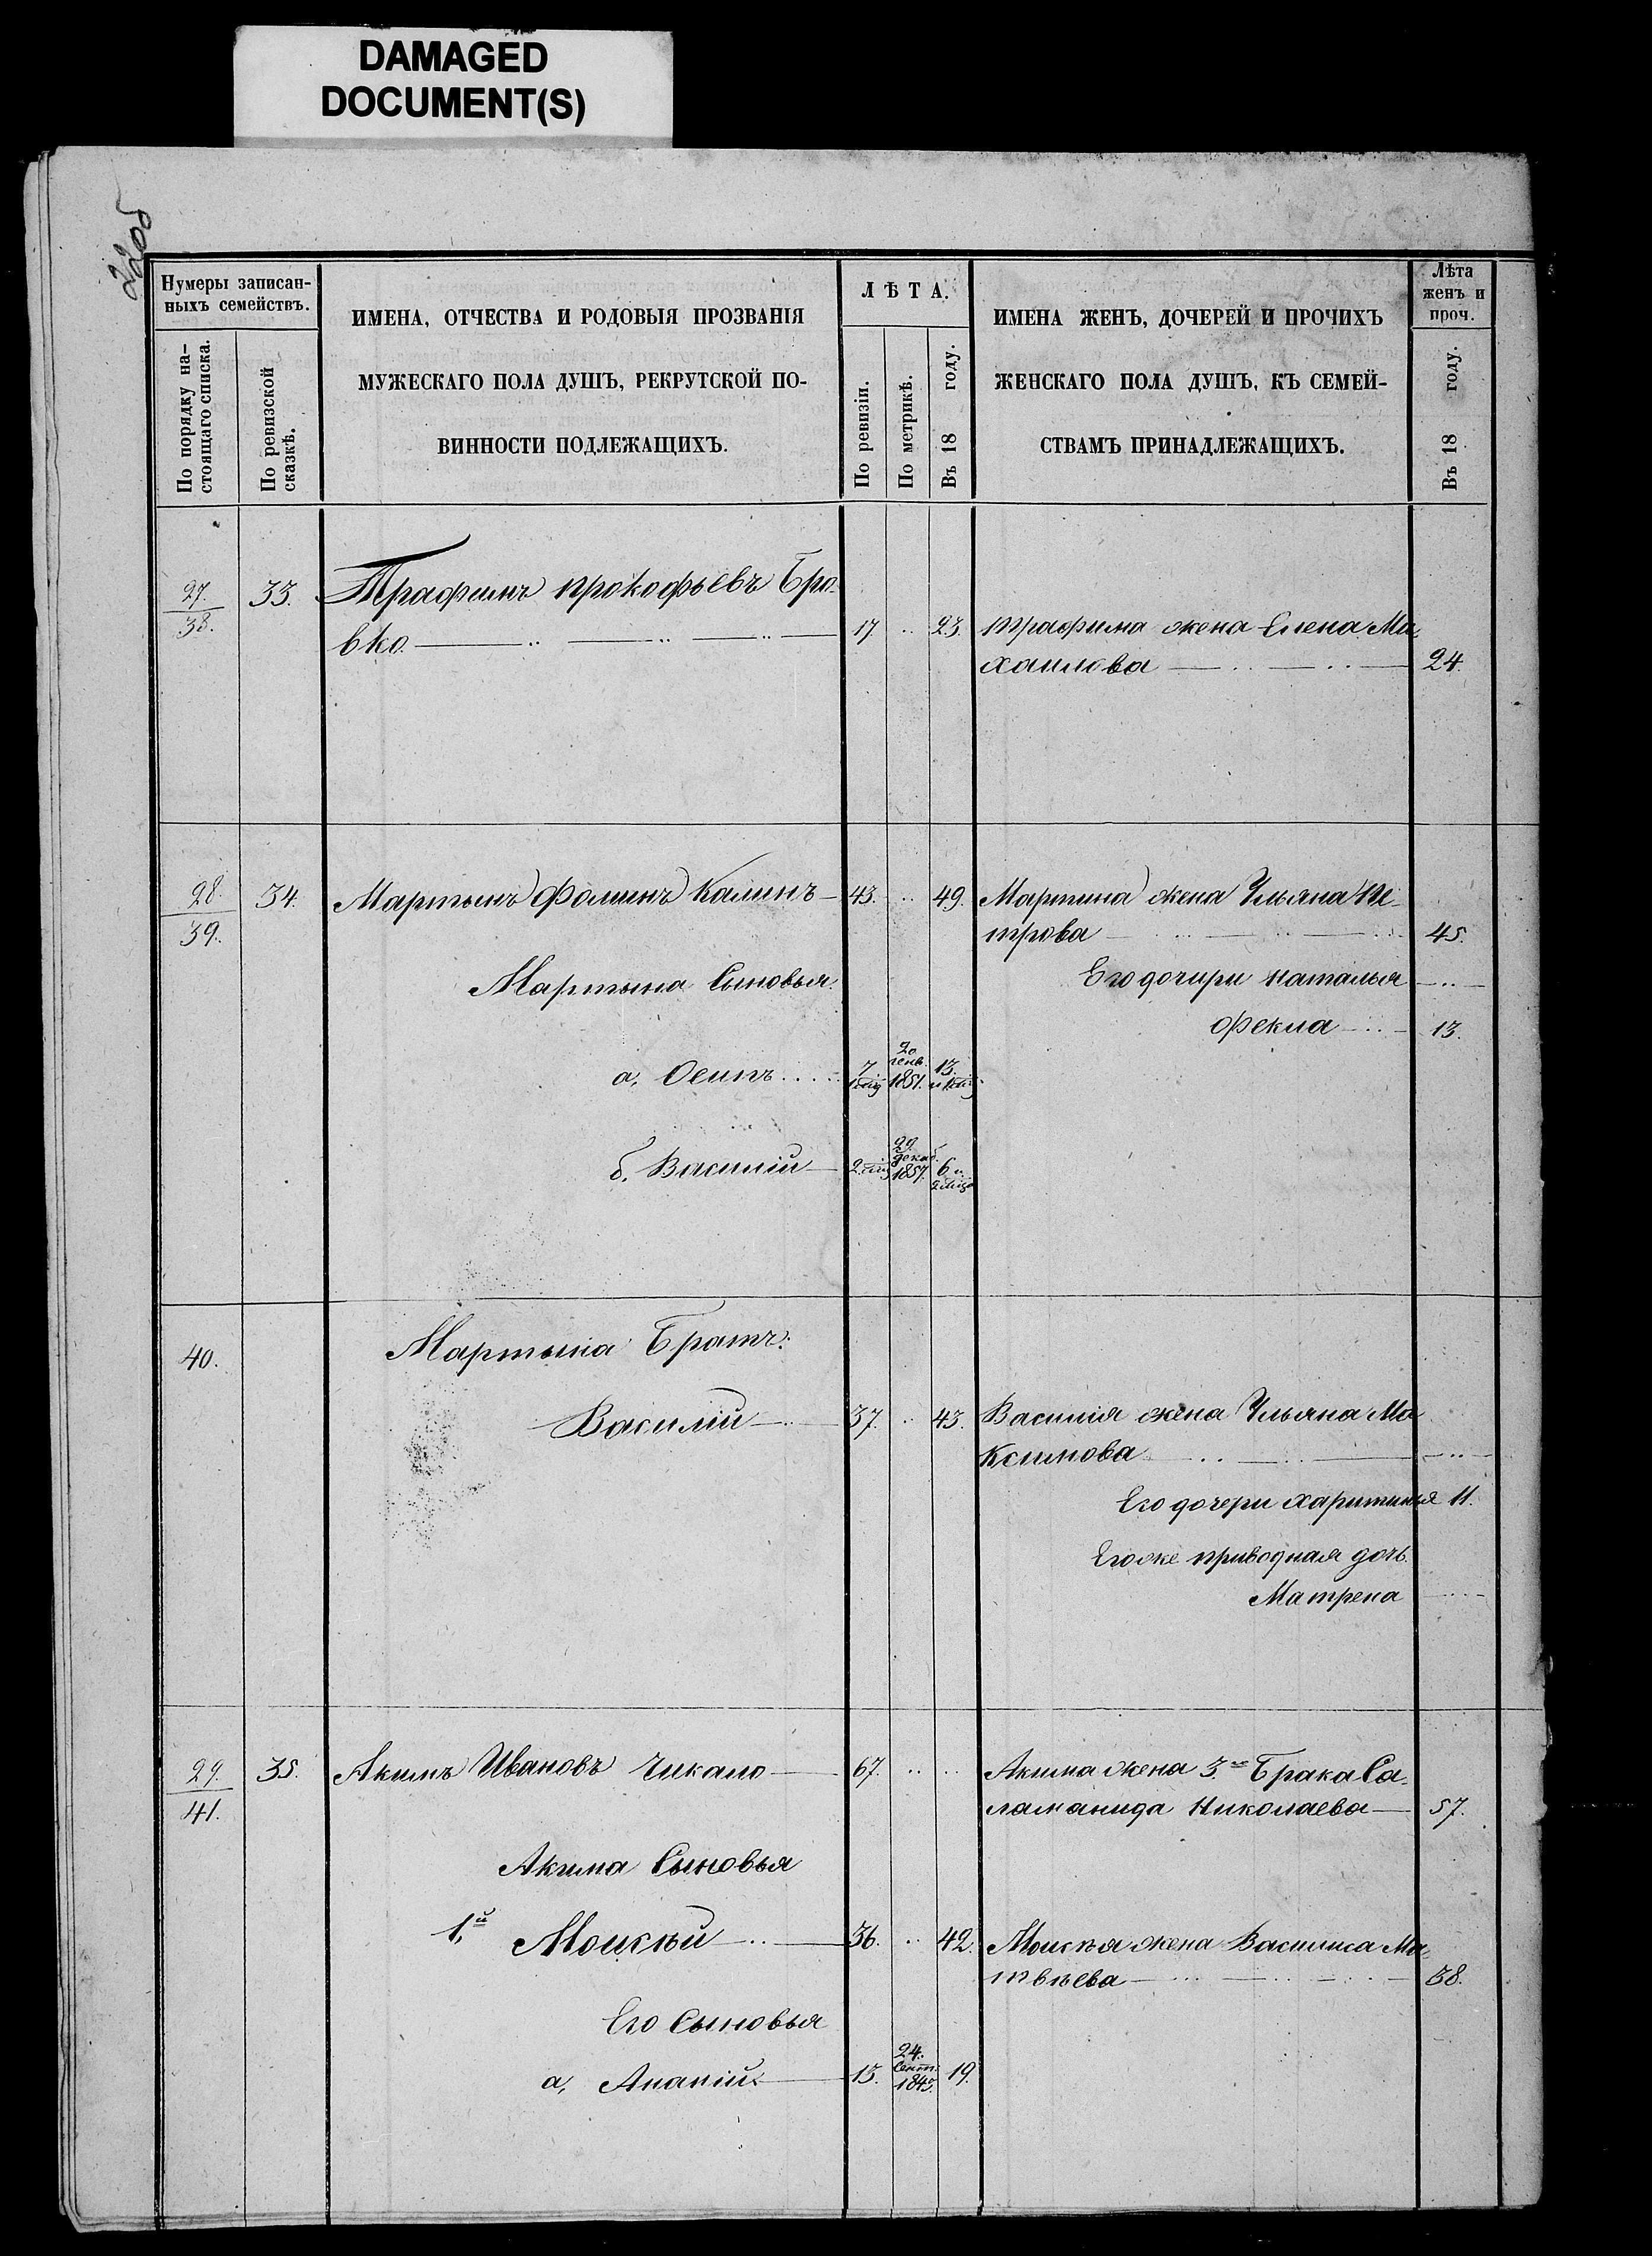 DAMAGED
DOCUMENT(S)
22об
Нумеры записан-
ныхъ семействъ.
По порядку на-
стоящаго списка.
По ревизской
сказкѣ.
ИМЕНА, ОТЧЕСТВА И РОДОВЫЯ ПРОЗВАНІЯ
МУЖЕСКАГО ПОЛА ДУШЪ, РЕКРУТСКОЙ ПО-
ВИННОСТИ ПОДЛЕЖАЩИХЪ.
ЛѢТА.
По ревизіи.
По метрикѣ.
Въ 18 году.
ИМЕНА ЖЕНЪ, ДОЧЕРЕЙ И ПРОЧИХЪ
ЖЕНСКАГО ПОЛА ДУШЪ, КЪ СЕМЕЙ-
СТВАМЪ ПРИНАДЛЕЖАЩИХЪ.
Лѣта
женъ и
проч.
Въ 18 году.
27. 33. Трафимъ Прокофьевъ Бро-
38. вко. 17 23. Трафима жена Елена Ми-
хаилова 24.
28. 34. Мартынъ Фоминъ Калинъ 43. 49. Мартина жена Ульяна Пе-
39. трова 45.
Мартына Сыновья: Его дочири Наталья
Фекла 13.
20
генв.
а, Осипъ 7 1851. 13.
29
декаб.
б, Василій 1857. 6 и
40. Мартына Братъ:
Василій 37. 43. Василія жена Ульяна Ма
ксимова
Его дочери Харитинья 11.
Егоже приводная дочь
Матрена
29. 35. Акимъ Ивановъ Чикало 67. Акима жена 3. Брака Са-
41. ламанида Николаева 57.
Акима Сыновья
1,й Моисѣй 36. 42. Моисѣя жена Василиса Ма-
твѣева 38.
Его Сыновья
24.
Сент.
а, Ананій 13. 1845. 19.